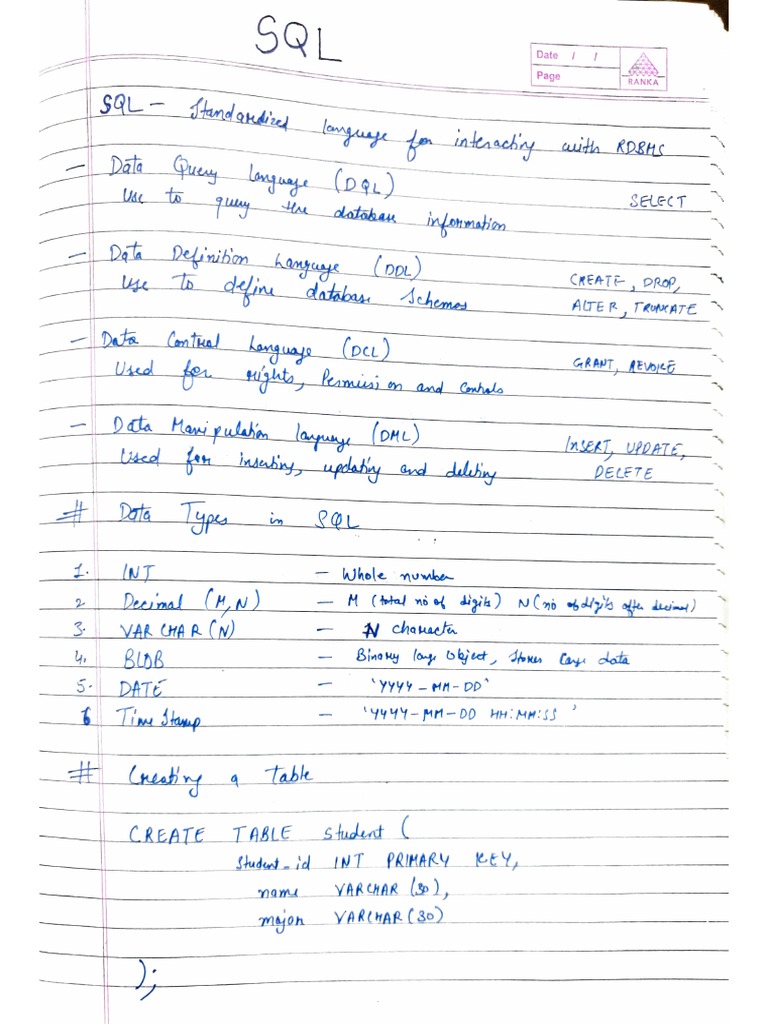 SQL
Date / /
Page
RANKA
SQL - Standardized language for interacting with RDBMS
- Data Query Language (DQL)
SELECT
Use to query the database information
- Data Definition Language (DDL)
CREATE, DROP,
Use to define database Schemas
ALTER, TRUNCATE
- Data Control Language (DCL)
GRANT, REVOKE
Used for rights, Permission and Controls
- Data Manipulation language (DML)
INSERT, UPDATE,
Used for inserting, updating and deleting
DELETE
# Data Types in SQL
1. INT - Whole number
2 Decimal (M,N) - M (total no of digits) N (no of digits after decimal)
3. VARCHAR(N) - N character
4. BLOB - Binary large Object, Stores Large data
5. DATE - 'YYYY-MM-DD'
6 TimeStamp - 'YYYY-MM-DD HH:MM:SS'
# Creating a Table
CREATE TABLE student (
student_id INT PRIMARY KEY,
name VARCHAR (30),
major VARCHAR (30)
);